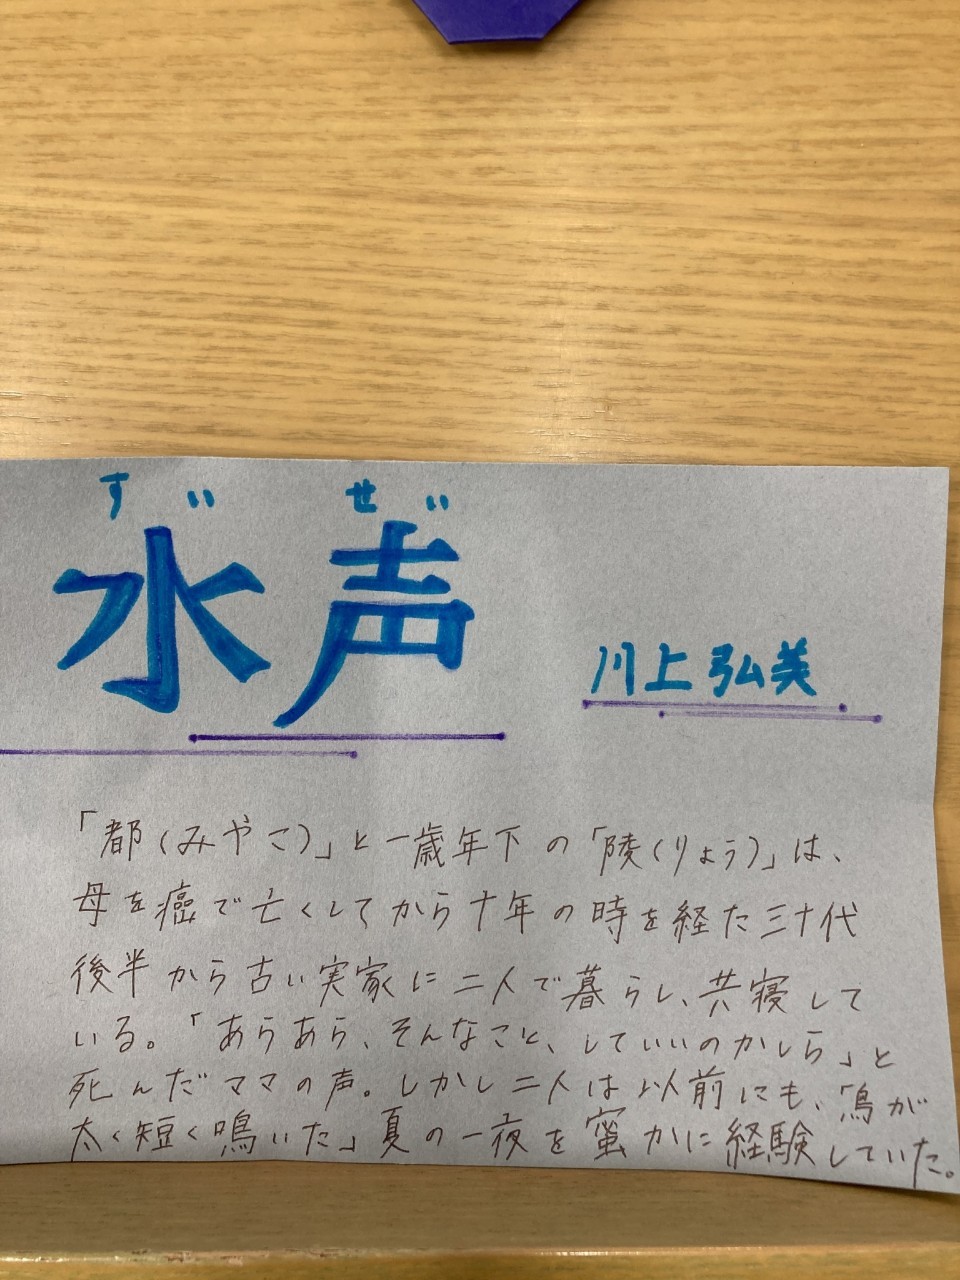 すい せい
水声
川上弘美
「都(みやこ)」と一歳年下の「陵(りょう)」は、
母を癌で亡くしてから十年の時を経た三十代
後半から古い実家に二人で暮らし、共寝して
いる。「あらあら、そんなこと、していいのかしら」と
死んだママの声。しかし二人は以前にも、「鳥が
太く短く鳴いた」夏の一夜を蜜かに経験していた。